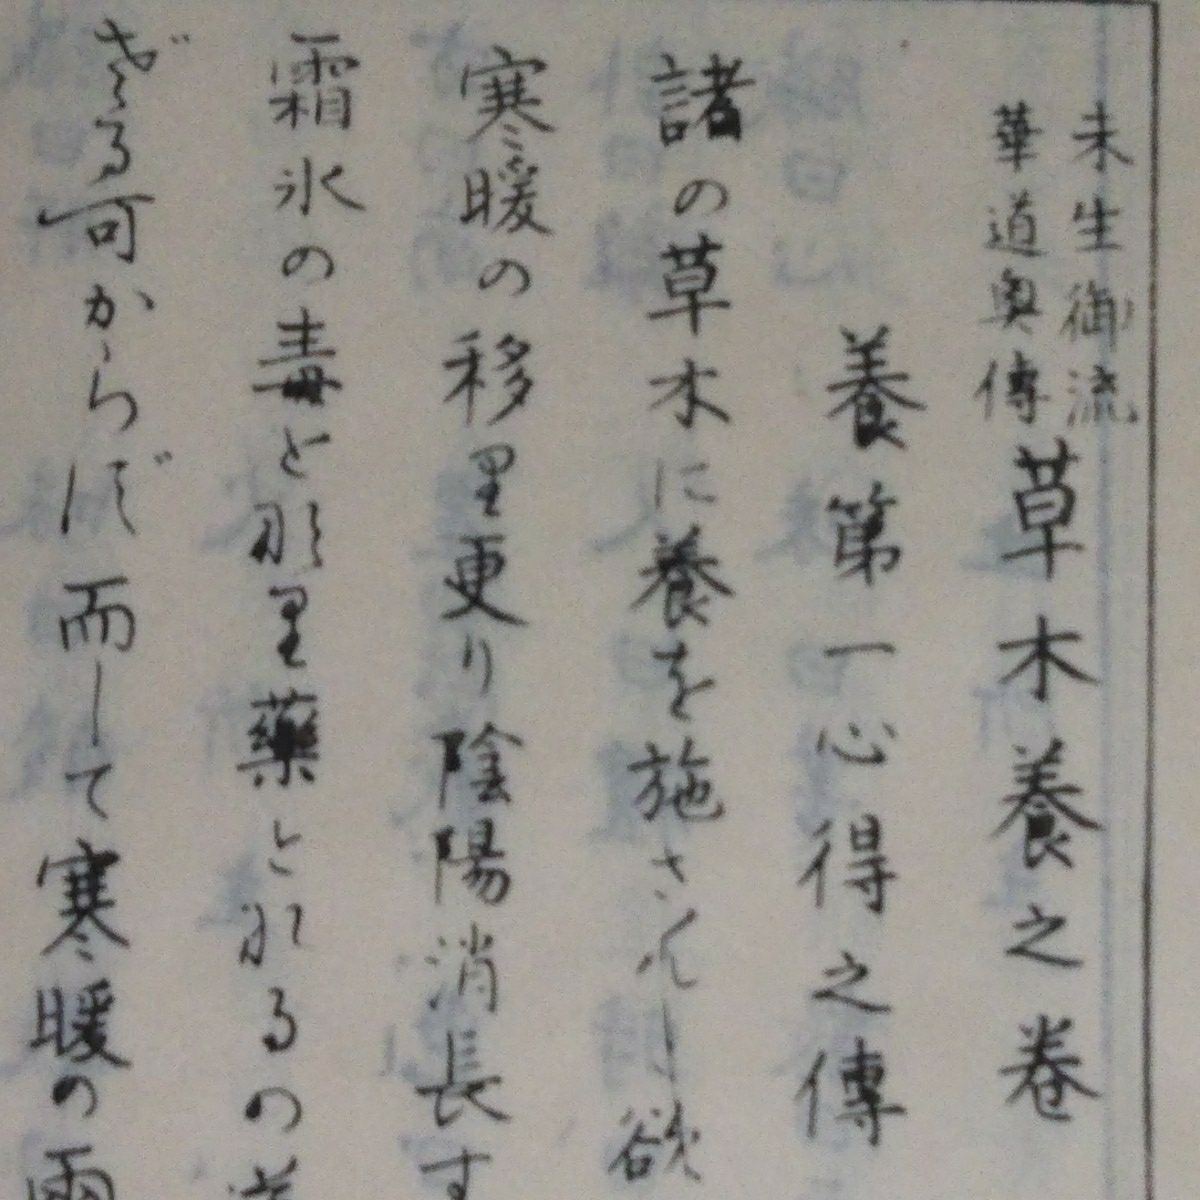 未生御流
華道奥傳
草木養之巻
養第一心得之傳
諸の草木に養を施さんと欲
寒暖の移里更り陰陽消長す
霜氷の毒と那里藥となるの
ざる可からず而して寒暖の雨